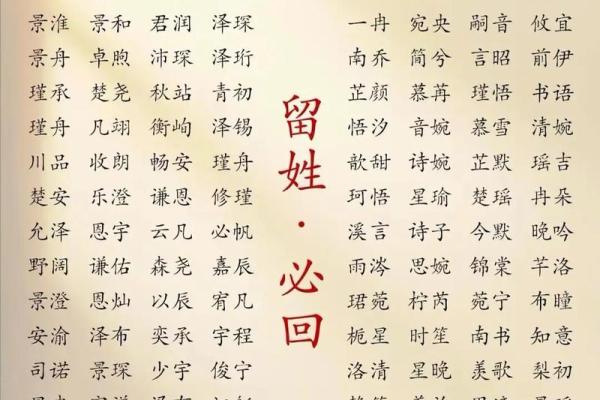 景淮 景和 君润 泽琛
景舟 卓煦 沛琛 泽珩
瑾承 楚尧 秋站 青初
瑾舟 凡翊 衡峋 泽锡
川品 收朗 畅安 瑾舟
楚安 乐澄 谦恩 修瑾
允泽 恩宇 云凡 必帆
野阔 谦佑 森尧 嘉辰
景澄 恩灿 以辰 宥凡
安渝 泽布 奕承 宇程
司诺 景琛 少宇 俊宁
留姓·必回
一冉 宛央 嗣音 攸宜
南乔 简兮 言昭 前伊
芷颜 慕苒 瑾悟 书语
悟汐 音婉 慕雪 清婉
歆甜 诗婉 芷默 瑶吉
珂悟 星瑜 楚瑶 冉朵
溪言 诗子 今默 晚吟
雨涔 思婉 锦棠 芊洛
珺菀 柠芮 菀宁 布瞳
栀星 时笙 南书 知意
洛清 星晚 羡歌 梨初